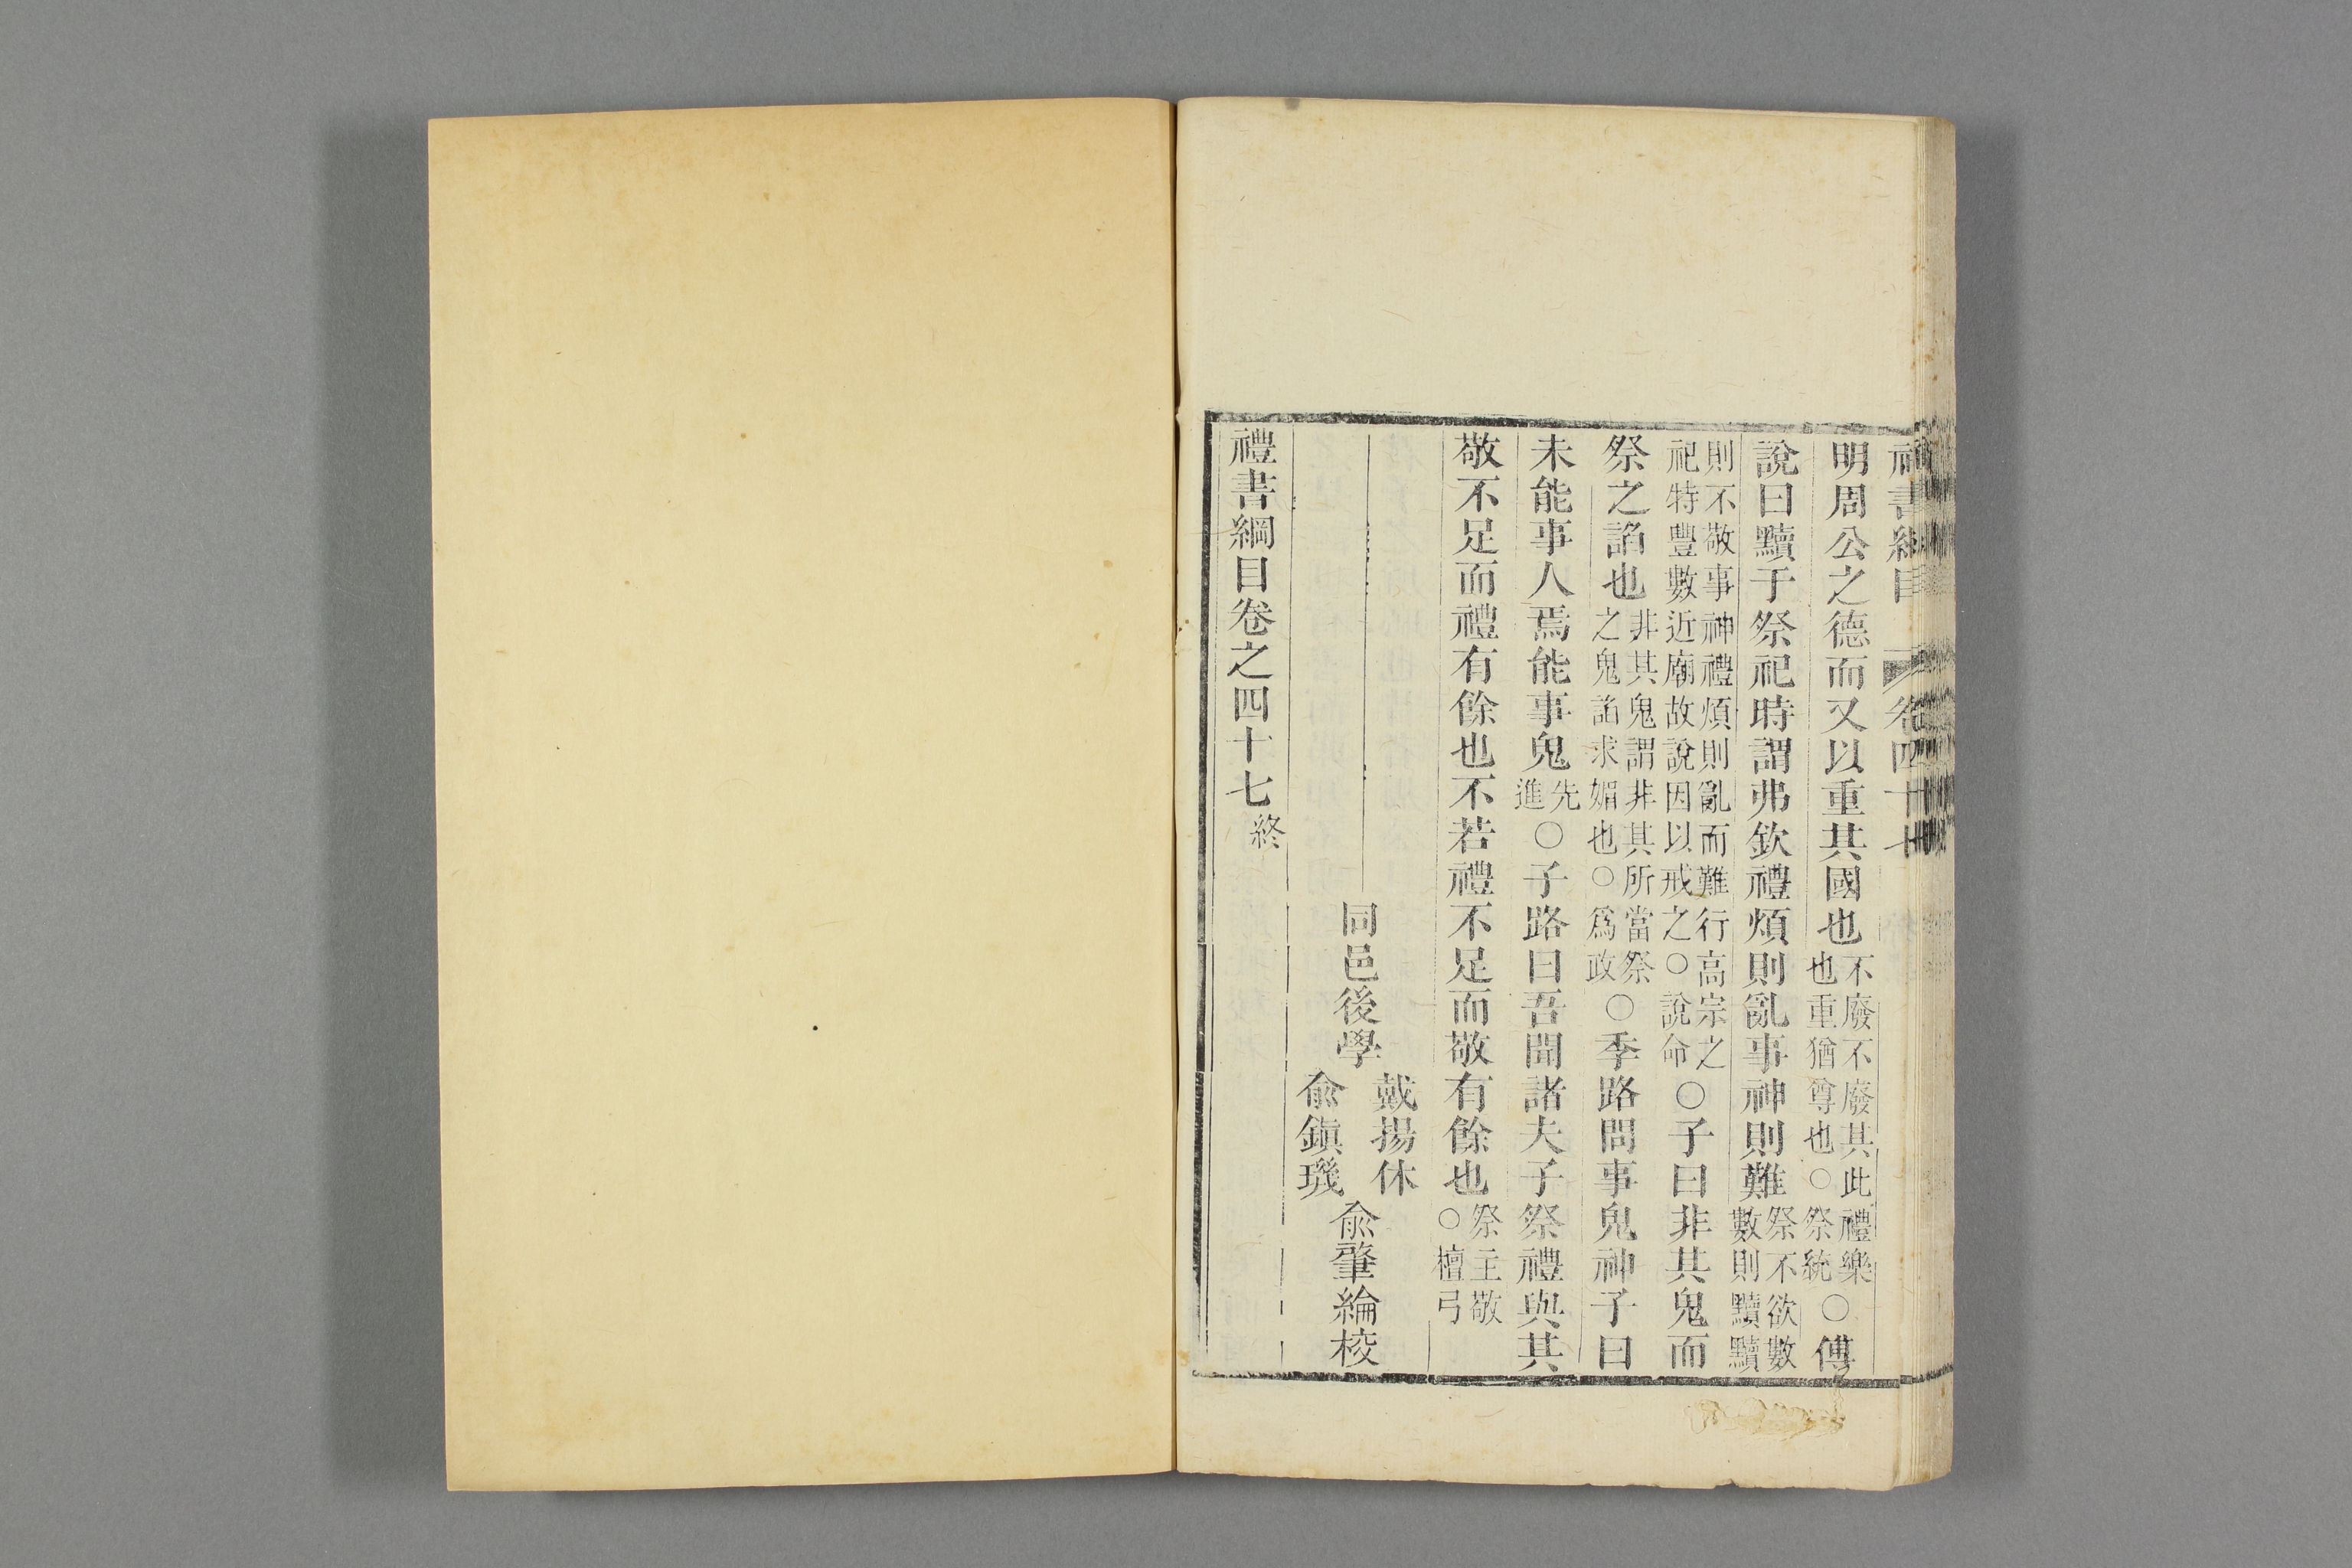 禮書綱目 卷四十七
明周公之德而又以重其國也不廢不廢其此禮樂也重猶尊也○祭統○傅
說曰黷于祭祀時謂弗欽禮煩則亂事神則難祭不欲數數則黷黷
則不敬事神禮煩則亂而難行高宗之祀特豐數近廟故說因以戒之○說命○子曰非其鬼而
祭之諂也非其鬼謂非其所當祭之鬼諂求媚也○爲政○季路問事鬼神子曰
未能事人焉能事鬼先進○子路曰吾聞諸夫子祭禮與其
敬不足而禮有餘也不若禮不足而敬有餘也祭主敬○檀弓
同邑後學 戴揚休 俞鎭璣 俞肇綸校
禮書綱目卷之四十七終